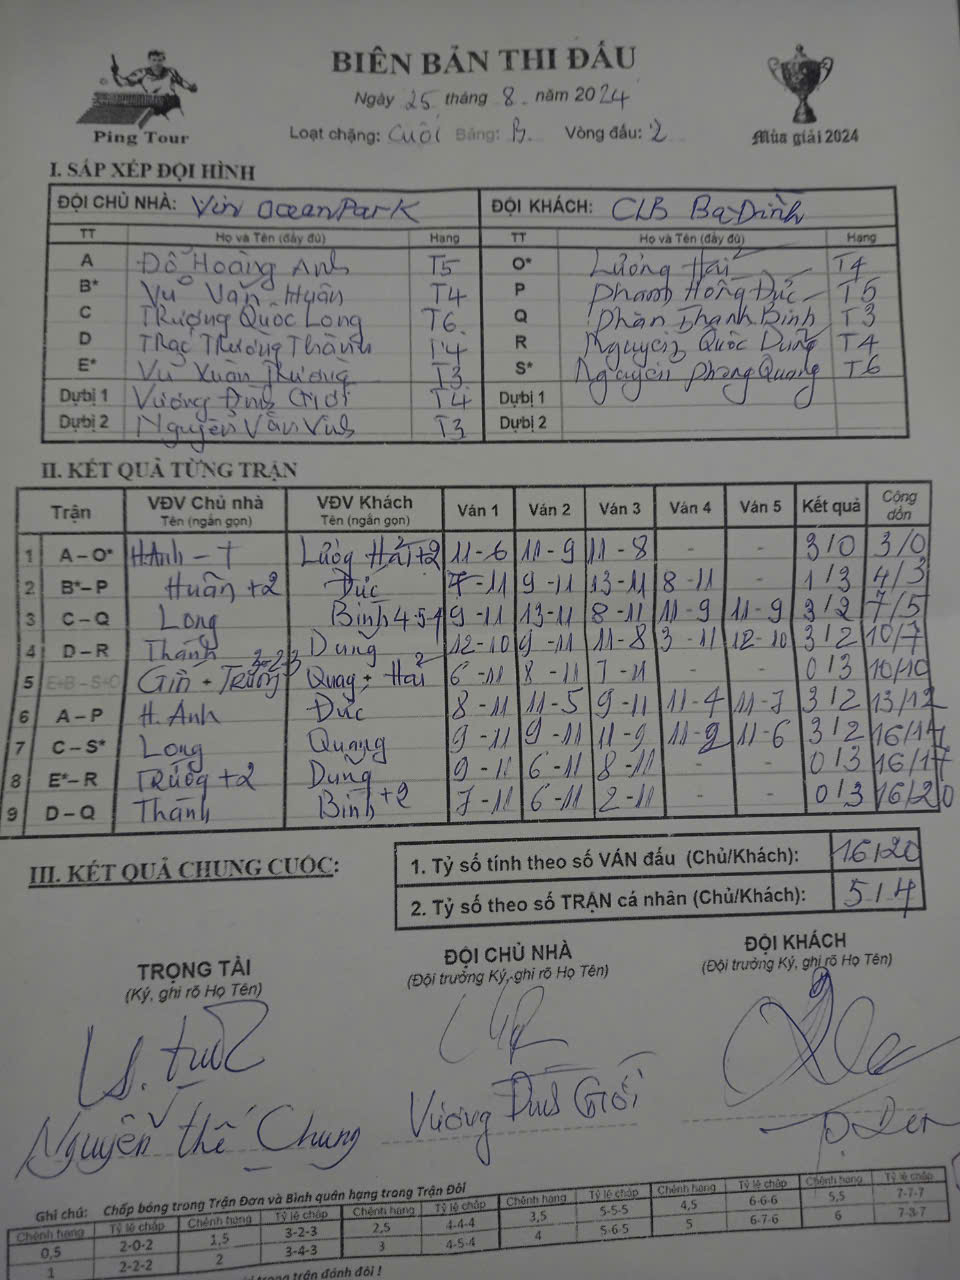 BIÊN BẢN THI ĐẤU
Ngày 25 tháng 8 năm 2024
Ping Tour
Loạt chặng: Cuối Bảng: B Vòng đấu: 2
Mùa giải 2024
I. SẮP XẾP ĐỘI HÌNH
ĐỘI CHỦ NHÀ: Vin OceanPark ĐỘI KHÁCH: CLB Ba Đình
TT Họ và Tên (đầy đủ) Hạng TT Họ và Tên (đầy đủ) Hạng
A Đỗ Hoàng Anh T5 O* Lương Hải T4
B* Vũ Văn Huân T4 P Phạm Hồng Đức T5
C Trương Quốc Long T6 Q Phan Thanh Bình T3
D Thạc Trương Thành T4 R Nguyễn Quốc Dung T4
E* Vũ Xuân Trường T3 S* Nguyễn Phong Quang T6
Dự bị 1 Vương Đình Giới T4 Dự bị 1
Dự bị 2 Nguyễn Văn Vinh T3 Dự bị 2
II. KẾT QUẢ TỪNG TRẬN
Trận VĐV Chủ nhà Tên (ngắn gọn) VĐV Khách Tên (ngắn gọn) Ván 1 Ván 2 Ván 3 Ván 4 Ván 5 Kết quả Cộng dồn
1 A – O* H.Anh Lương Hải +2 11-6 11-9 11-8 - - 3/0 3/0
2 B* – P Huân +2 Đức 7-11 9-11 13-11 8-11 - 1/3 4/3
3 C – Q Long Bình 4-5-4 9-11 13-11 8-11 11-9 11-9 3/2 7/5
4 D – R Thành Dung 12-10 9-11 11-8 3-11 12-10 3/2 10/7
5 E+B – S+O Giới + Trường 3-2-3 Quang + Hải 6-11 8-11 7-11 - - 0/3 10/10
6 A – P H. Anh Đức 8-11 11-5 9-11 11-4 11-7 3/2 13/12
7 C – S* Long Quang 9-11 9-11 11-9 11-9 11-6 3/2 16/14
8 E* – R Trường +2 Dung 9-11 6-11 8-11 - - 0/3 16/17
9 D – Q Thành Bình +2 7-11 6-11 2-11 - - 0/3 16/20
III. KẾT QUẢ CHUNG CUỘC:
1. Tỷ số tính theo số VÁN đấu (Chủ/Khách): 16/20
2. Tỷ số theo số TRẬN cá nhân (Chủ/Khách): 5/4
TRỌNG TÀI ĐỘI CHỦ NHÀ ĐỘI KHÁCH
(Ký, ghi rõ Họ Tên) (Đội trưởng Ký, ghi rõ Họ Tên) (Đội trưởng Ký, ghi rõ Họ Tên)
Nguyễn Thế Chung Vương Đình Giới
Ghi chú: Chấp bóng trong Trận Đơn và Bình quân hạng trong Trận Đôi
Chênh hạng Tỷ lệ chấp Chênh hạng Tỷ lệ chấp Chênh hạng Tỷ lệ chấp Chênh hạng Tỷ lệ chấp Chênh hạng Tỷ lệ chấp
0,5 2-0-2 1,5 3-2-3 2,5 4-4-4 3,5 5-5-5 4,5 6-6-6 5,5 7-7-7
1 2-2-2 2 3-4-3 3 4-5-4 4 5-6-5 5 6-7-6 6 7-8-7
trong trận đánh đôi !